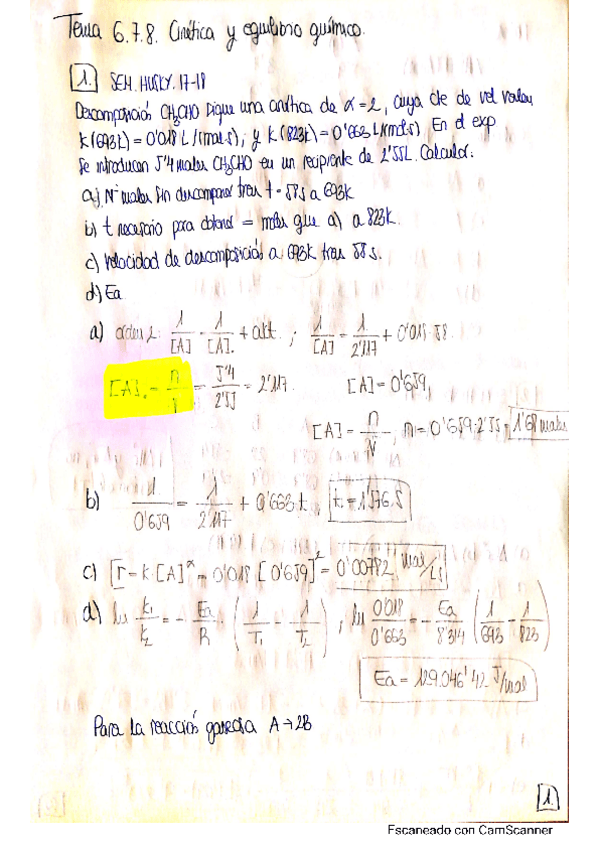 Tema 6.7.8. Cinética y equilibrio químico.
1. SEM. HUSKY. 17-18
Descomposición CH₃CHO sigue una cinética de α=2, cuya cte de vel valen
k(693K) = 0'018 L/(mol·s); y k(823K) = 0'663 L/(mol·s). En el exp
se introducen 5'4 moles CH₃CHO en un recipiente de 2'55L. Calcular:
a) Nº moles sin descomponer tras t = 58s a 693K
b) t necesario para obtener = moles que a) a 823K.
c) Velocidad de descomposición a 693K tras 58s.
d) Ea
a) orden 2: 1/[A] = 1/[A]₀ + αkt ; 1/[A] = 1/2'117 + 0'018·58.
[A]₀ = n/V = 5'4/2'55 = 2'117. [A] = 0'659,
[A] = n/V, n = 0'659·2'55 = 1'68 moles
b) 1/0'659 = 1/2'117 + 0'663·t. t = 1'576.s
c) r = k·[A]^α = 0'018 [0'659]² = 0'00782 mol/Ls
d) ln k₁/k₂ = - Ea/R · (1/T₁ - 1/T₂) ; ln 0'018/0'663 = - Ea/8'314 (1/693 - 1/823)
Ea = 129.046'42 J/mol
Para la reacción gaseosa A→2B
1
Escaneado con CamScanner